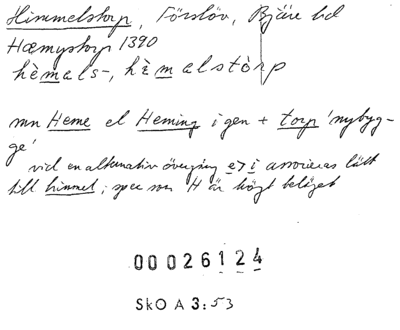 Himmelstorp, Förslöv, Bjäre hd
Hæmystorp 1390
hèmals-, hèmalstòrp
mn Heme el Heming i gen + torp 'nybyg-
ge'
vid en alternativ övergång e > i associeras lätt
till himmel; spec som H är högt beläget
00026124
SkO A 3:53